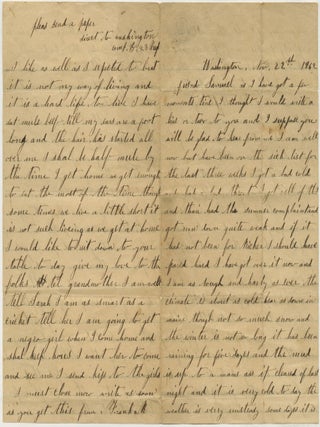 pleas send a paper
direct to washington
comp
it like as well as I expected to but
it is not my way of living and
it is a hard life to live I have
eat mule beef till my ears are a foot
long and the hair has started all
over me I shal be half mule by
the time I get home we get enough
to eat the most of the time though
some times we live a little short it
is not such living as we get at home
I would like to sit down to your
table to day give my love to the
folks tell grandmother I am well
tell Sarah I am as smart as a
cricket tell her I am going to get
a negro girl when I come home and
shal keep house I want her to come
and see me I send kiss to the girls
I must close now write as soon
as you get this from Frank
Washington, nov, 22th 1862
friend Samuel as I have got a few
moments time I thought I would write a few
lines to you and I suppose you
will be glad to hear from me I am well
now but have been on the sick list for
the last three weeks I got a bad cold
and I got all of this
and then had the summer complaint and
got run down quite weak and if it
had not been for Richer I should have
fared hard I have got over it now and
I am as tough and hearty as ever the
climate is about as cold hear as down in
maine though not so much snow and
the winter is not so long it has been
raining for five days and the mud
is up to a mans ass it cleared of last
night and it is very cold to day the
weather is very unsteady some days it is